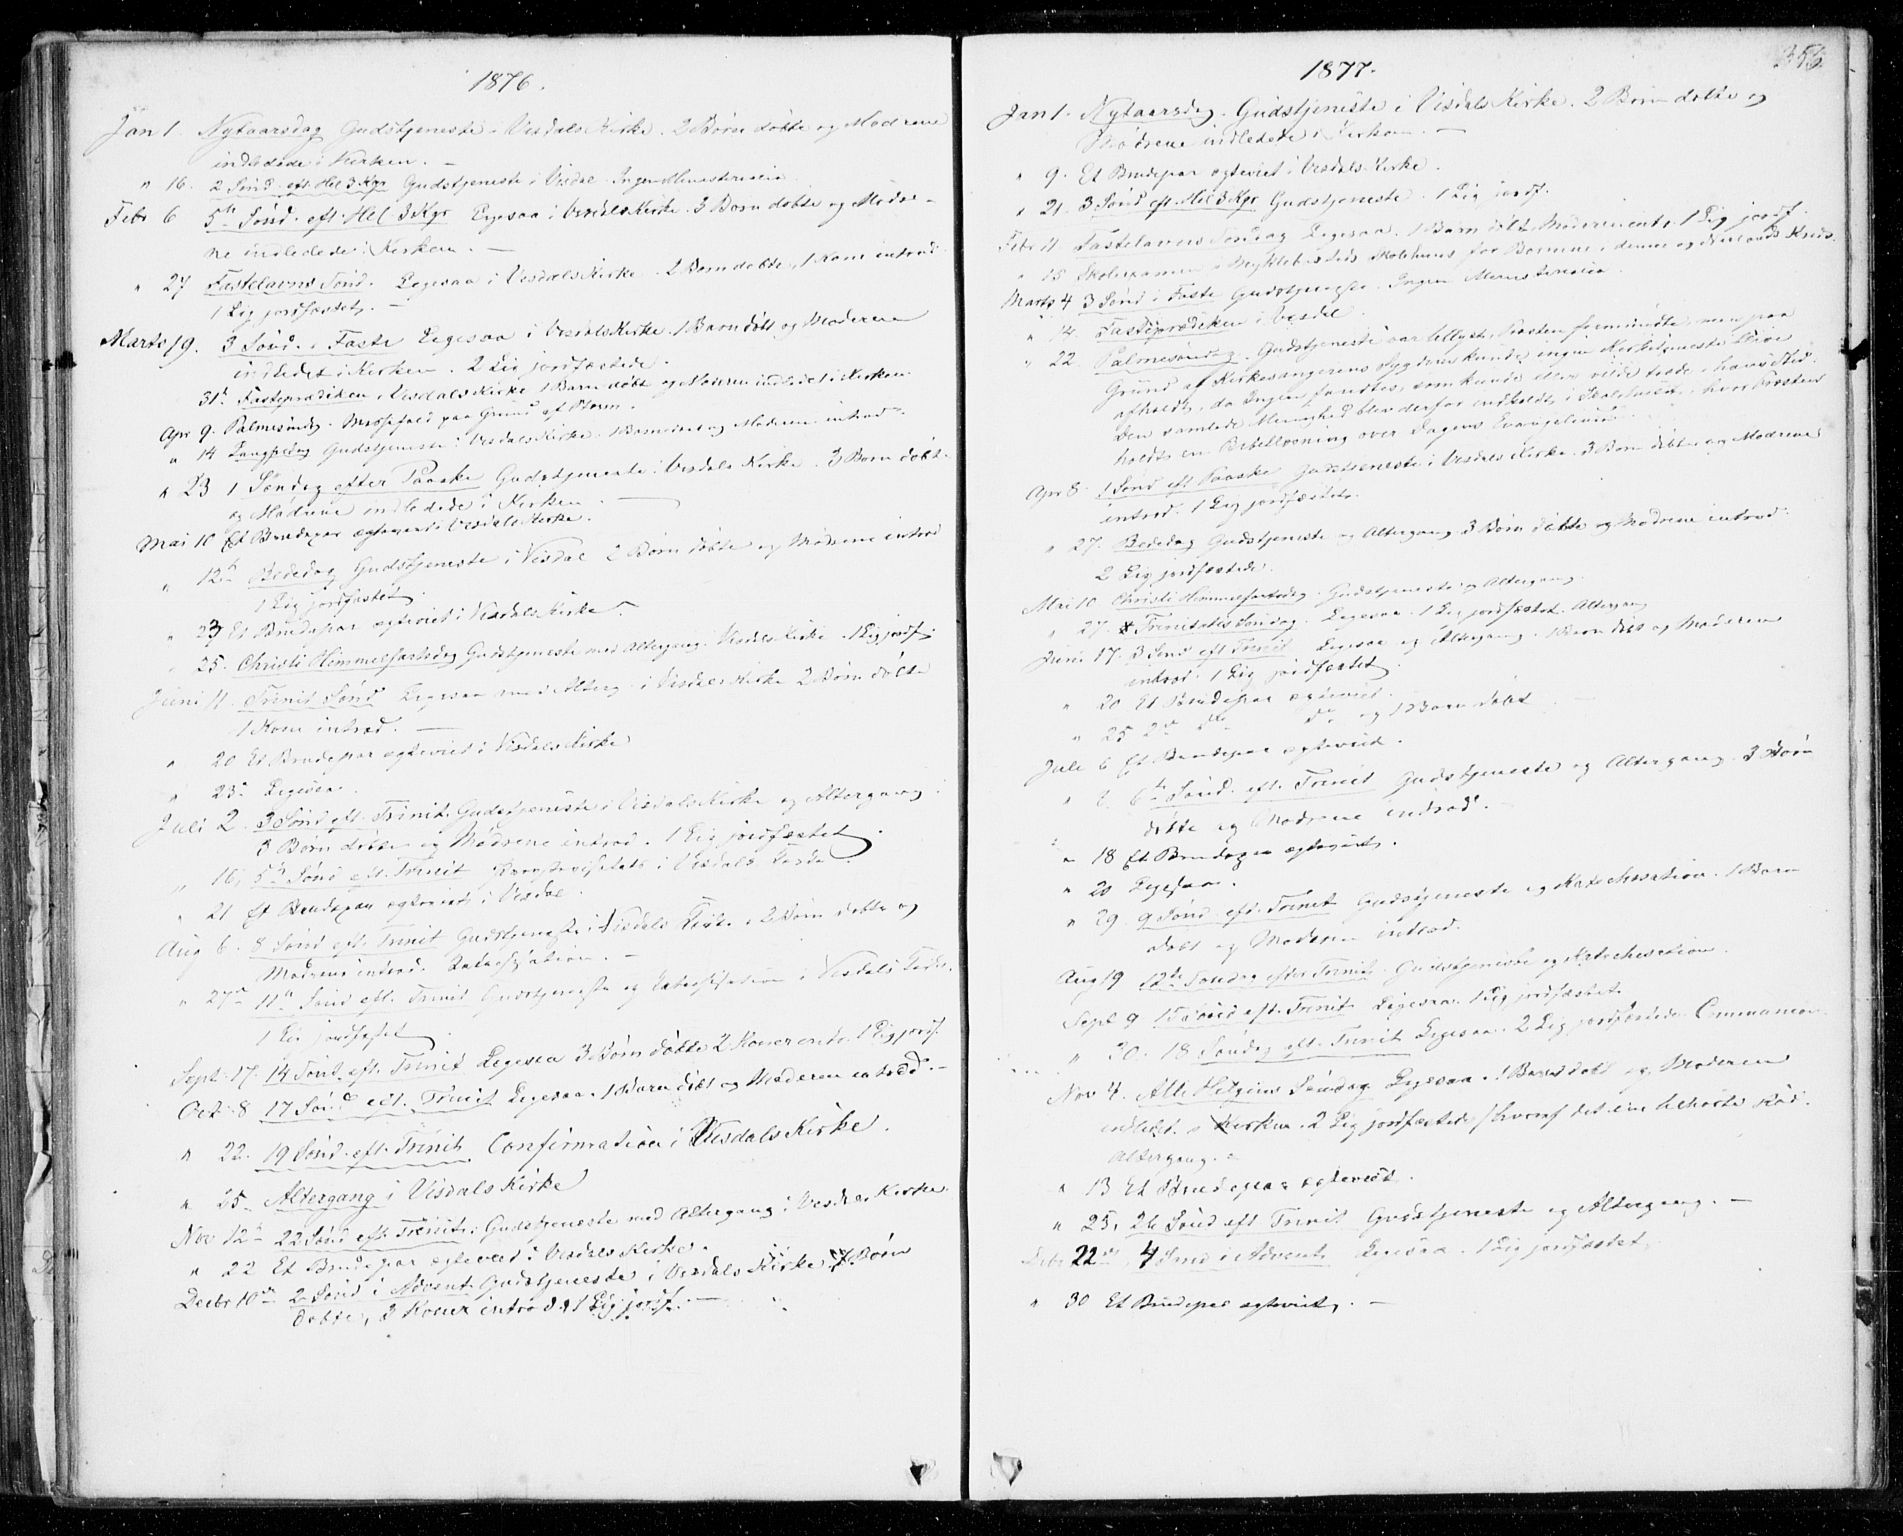 1876.
Jan 1. Nytaarsdag Gudstjeneste i Visdals Kirke. 2 Børn døbte og Mødrene
indledede i Kirken. —
" 16. 2 Sønd. eft. Hel 3 Kgr Gudstjeneste i Visdal. Ingen Ministerialia
Febr 6 5te Sønd. eft. Hel 3 Kgr Ligesaa i Visdals Kirke. 3 Børn døbte og Mødre-
ne indledede i Kirken. —
" 27 Fastelavns Sønd. Ligesaa i Visdals Kirke. 2 Børn døbte, 1 Kone introd.
1 Lig jordfæstet. —
Marts 19. 3 Sønd. i Faste Ligesaa i Visdals Kirke. 1 Barn døbt og Moderen
indledet i Kirken. 2 Lig jordfæstede.
31te Fasteprædiken i Visdals Kirke 1 Barn døbt og Moderen indledet i Kirken.
Apr 9. Palmesøndag. Messefald paa Grund af Storm.
" 14 Langfredag Gudstjeneste i Visdals Kirke. 1 Barn døbt og Moderen introd.
" 23 1 Søndag efter Paaske Gudstjeneste i Visdals Kirke. 3 Børn døbte
og Mødrene indledede i Kirken. —
Mai 10 Et Brudepar egteviet i Visdals Kirke.
" 12te Bededag Gudstjeneste i Visdal 2 Børn døbte og Mødrene introd
1 Lig jordfæstet.
" 23 Et Brudepar egteviet i Visdals Kirke.
" 25. Christi Himmelfartsdag Gudstjeneste med Altergang i Visdals Kirke. 1 Lig jordf.
Juni 11. Trinit Sønd Ligesaa med Alterg. i Visdals Kirke 2 Børn døbte
1 Kone introd. —
" 20 Et Brudepar egteviet i Visdals Kirke
" 25. Ligesaa.
Juli 2. 3 Sønd eft. Trinit. Gudstjeneste i Visdals Kirke og Altergang.
3 Børn døbte og Mødrene introd. 1 Lig jordfæstet.
" 16, 5te Sønd eft. Trinit i Visdals Kirke
" 21 Et Brudepar egteviet i Visdal.
Aug 6. 8 Sønd eft. Trinit Gudstjeneste i Visdals Kirke. 2 Børn døbte og
Mødrene introd. Katechisation. —
" 27de 11te Sønd eft. Trinit Gudstjeneste og Katechisation i Visdals Kirke.
1 Lig jordfæstet.
Sept. 17. 14 Sønd. eft. Trinit Ligesaa 3 Børn døbte 2 Koner introd. 1 Lig jordf.
Oct. 8 17 Sønd eft. Trinit Ligesaa. 1 Barn døbt og Moderen introd. —
" 22. 19 Sønd. eft. Trinit. Confirmation i Visdals Kirke.
" 25. Altergang i Visdals Kirke
Nov 12te 22 Sønd eft. Trinit. Gudstjeneste med Altergang i Visdals Kirke.
" 22 Et Brudepar egteviet i Visdals Kirke.
Decbr 10de 2 Sønd i Advent Gudstjeneste i Visdals Kirke Børn
døbte, 3 Koner introd. 1 Lig jordf. —
1877.
Jan 1. Nytaarsdag. Gudstjeneste i Visdals Kirke. 2 Børn døbte og
Mødrene indledede i Kirken. —
" 9. Et Brudepar egteviet i Visdals Kirke.
" 21. 3 Sønd eft. Hel 3 Kgr Gudstjeneste. 1 Lig jordf.
Febr 11. Fastelavns Søndag Ligesaa. 1 Barn døbt, Moderen introd. 1 Lig jordf.
" 15 Skoleexamen i Skolehuus for Børnene i denne og Kreds.
Marts 4 3 Sønd i Faste Gudstjeneste. Ingen Ministerialia.
" 14 Fasteprædiken i Visdal.
" 22. Palmesøndag. Gudstjeneste var tillyst, Provsten fremmødte, men paa
Grund af Kirkesangerens Sygdom kunde ingen Kirketjeneste blive
afholdt, da Ingen fandtes, som kunde eller vilde træde i hans Sted.
Den samlede Menighed blev derfor indkaldt i Skolehuset, hvor Provsten
holdt en Bibellæsning over Dagens Evangelium.
Apr 8. 1 Sønd eft Paaske Gudstjeneste i Visdals Kirke. 3 Børn døbte og Mødrene
introd. 1 Lig jordfæstet.
" 27. Bededag Gudstjeneste og Altergang 3 Børn døbte og Mødrene introd.
2 Lig jordfæstede.
Mai 10 Christi Himmelfartsdag. Gudstjeneste og Altergang.
" 27. Trinitatis Søndag. Ligesaa. 1 Lig jordfæstet. Altergang
Juni 17. 3 Sønd eft Trinit Ligesaa og Altergang. 1 Barn døbt og Moderen
introd. 1 Lig jordfæstet.
" 20 Et Brudepar egteviet.
" 25 og 1 Barn døbt
Juli 6 Et Brudepar egteviet.
" 8. 6te Sønd. eft. Trinit Gudstjeneste og Altergang. 3 Børn
døbte og Mødrene introd. —
" 18 Et Brudepar egteviet.
" 20 Ligesaa.
" 29. 9 Sønd. eft. Trinit Gudstjeneste og Katechisation. 1 Barn
døbt og Moderen introd.
Aug 19 12te Søndag efter Trinit. Gudstjeneste og Katechisation.
Sept 9 15 Sønd eft. Trinit Ligesaa. 1 Lig jordfæstet.
" 30. 18 Søndag eft. Trinit Ligesaa. 2 Lig jordfæstede. Communion
Nov 4. Alle Helgens Søndag Ligesaa. 1 Barn døbt og Moderen
indledet i Kirken. 2 Lig jordfæstede, hvoraf det ene tilhørte Rød.
Altergang. —
" 13 Et Brudepar egteviet.
" 25, 26 Sønd eft Trinit Gudstjeneste og Altergang. —
Decbr 22de 4 Sønd i Advent Ligesaa. 1 Lig jordfæstet.
" 30 Et Brudepar egteviet. —